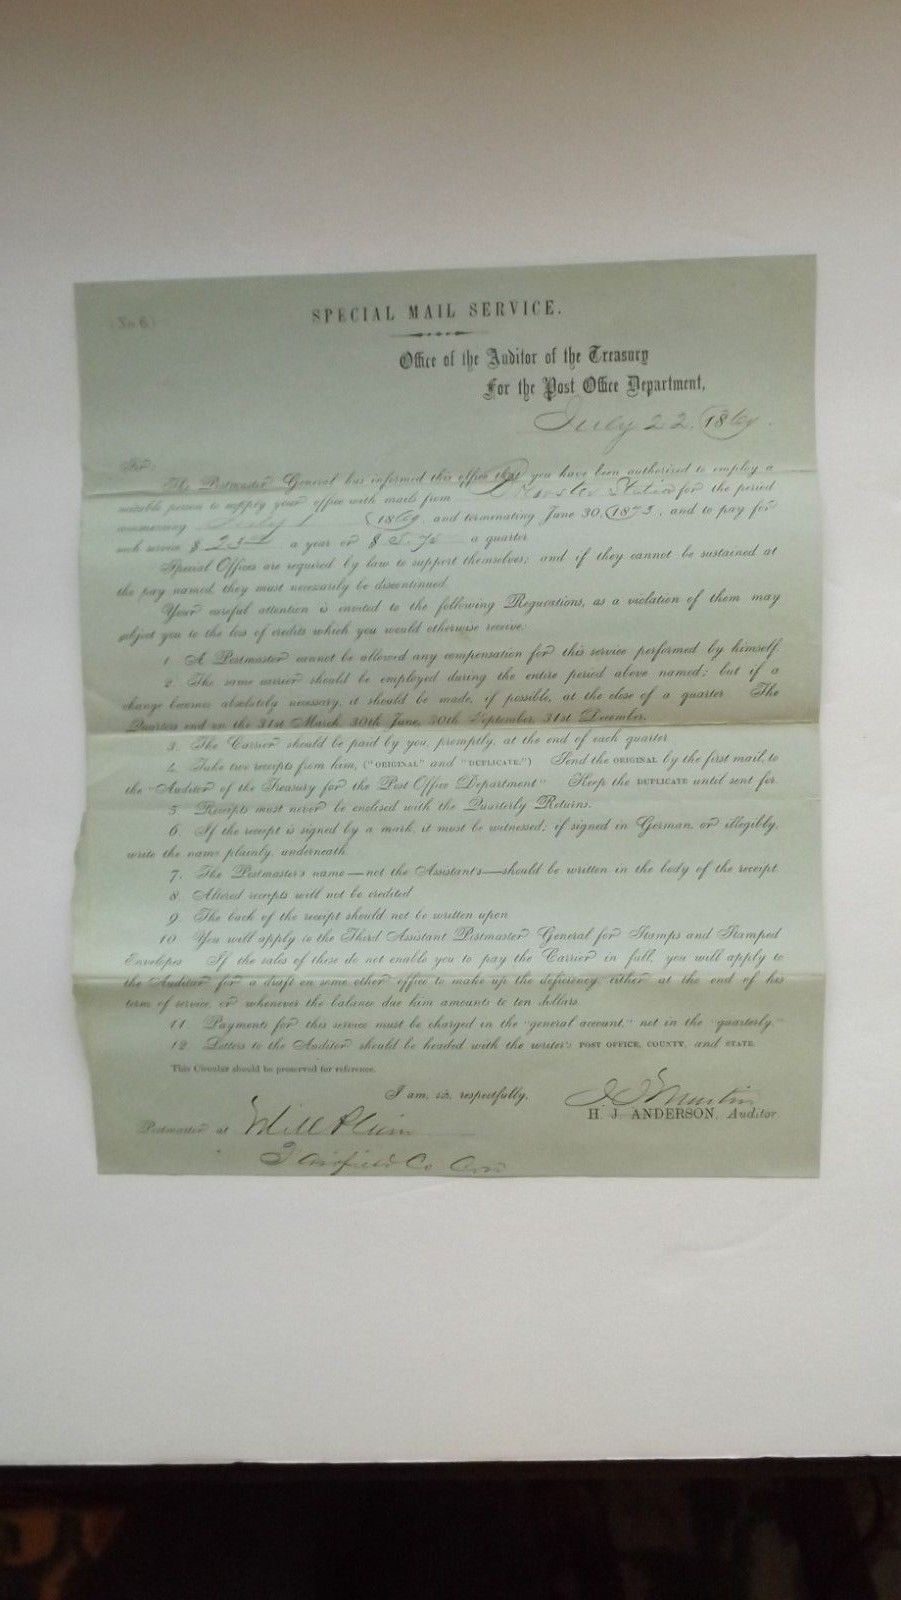 SPECIAL MAIL SERVICE.
Office of the Auditor of the Treasury
For the Post Office Department,
July 22, 1869.
Sir:
The Postmaster General has informed this office that you have been authorized to employ a
suitable person to supply your office with mails from Station for the period
commencing July 1 1869, and terminating June 30, 1873, and to pay for
such service $ 23 a year or $ 5.75 a quarter.
Special Offices are required by law to support themselves; and if they cannot be sustained at
the pay named, they must necessarily be discontinued.
Your careful attention is invited to the following Regulations, as a violation of them may
subject you to the loss of credits which you would otherwise receive:
1. A Postmaster cannot be allowed any compensation for this service performed by himself.
2. The same carrier should be employed during the entire period above named; but if a
change becomes absolutely necessary, it should be made, if possible, at the close of a quarter. The
Quarters end on the 31st March, 30th June, 30th September, 31st December.
3. The Carrier should be paid by you, promptly, at the end of each quarter.
4. Take two receipts from him, ("ORIGINAL" and "DUPLICATE.") Send the ORIGINAL by the first mail, to
the "Auditor of the Treasury for the Post Office Department." Keep the DUPLICATE until sent for.
5. Receipts must never be enclosed with the Quarterly Returns.
6. If the receipt is signed by a mark, it must be witnessed; if signed in German, or illegibly,
write the name plainly, underneath.
7. The Postmaster's name—not the Assistant's—should be written in the body of the receipt.
8. Altered receipts will not be credited.
9. The back of the receipt should not be written upon.
10. You will apply to the Third Assistant Postmaster General for Stamps and Stamped
Envelopes. If the sales of these do not enable you to pay the Carrier in full, you will apply to
the Auditor for a draft on some other office to make up the deficiency, either at the end of his
term of service, or whenever the balance due him amounts to ten dollars.
11. Payments for this service must be charged in the "general account," not in the "quarterly."
12. Letters to the Auditor should be headed with the writer's POST OFFICE, COUNTY, and STATE.
This Circular should be preserved for reference.
I am, &c., respectfully,
J J Martin
H. J. ANDERSON, Auditor.
Postmaster at Mill Plain
Fairfield Co Con